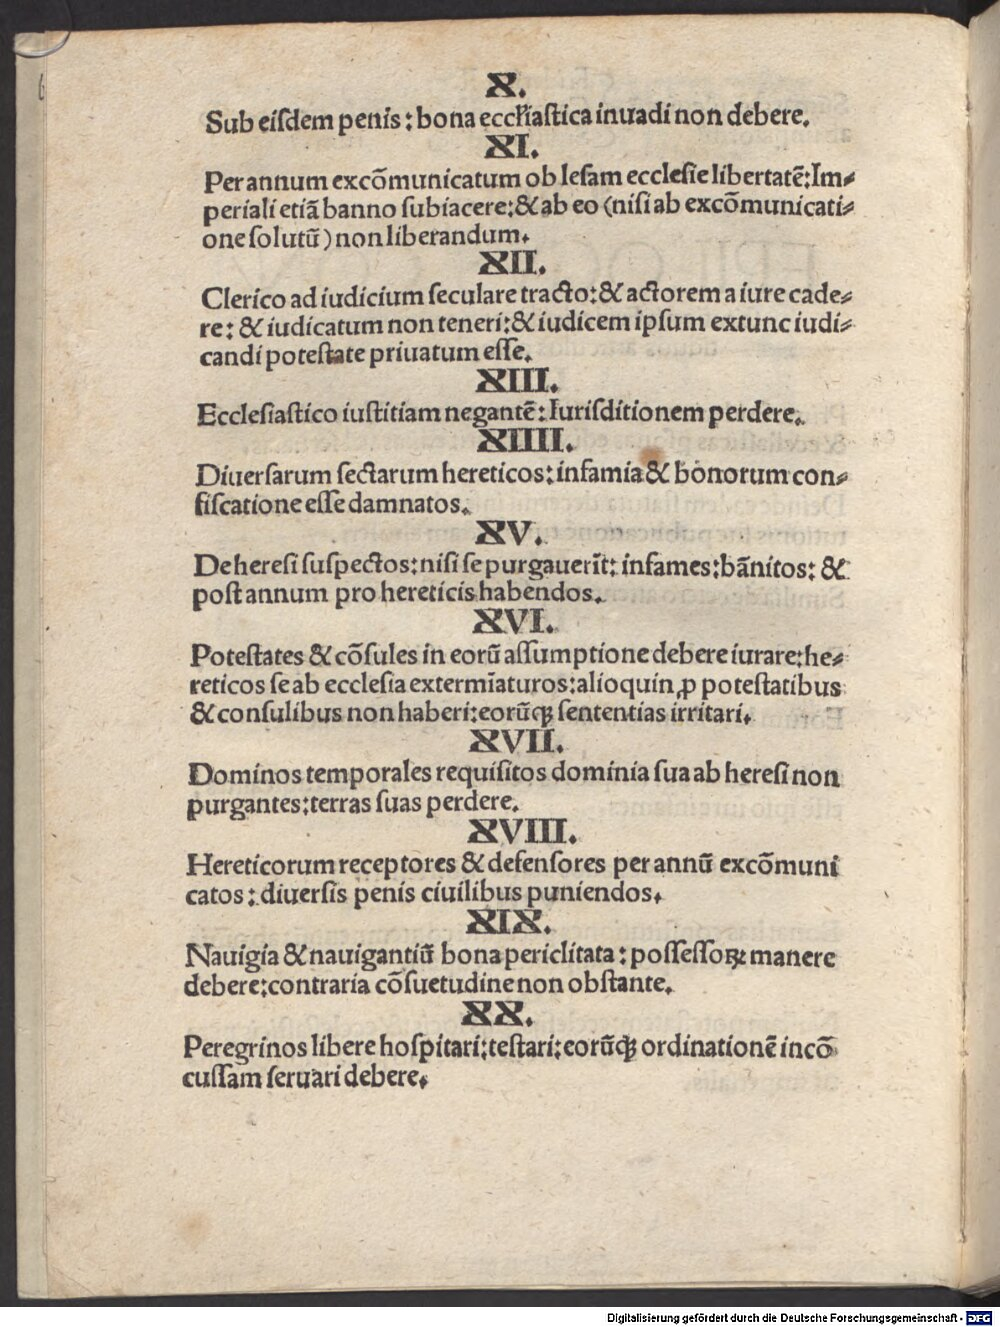 6
X.
Sub eiſdem penis: bona eccłiaſtica inuadi non debere.
XI.
Per annum excōmunicatum ob leſam eccleſie libertatē: Im⸗
periali etiā banno ſubiacere: & ab eo (niſi ab excōmunicati⸗
one ſolutū) non liberandum.
XII.
Clerico ad iudicium ſeculare tracto: & actorem a iure cade⸗
re: & iudicatum non teneri: & iudicem ipſum extunc iudi⸗
candi poteſtate priuatum eſſe.
XIII.
Eccleſiaſtico iuſtitiam negantē: Iurisditionem perdere.
XIIII.
Diuerſarum ſectarum hereticos: infamia & bonorum con⸗
fiſcatione eſſe damnatos.
XV.
De hereſi ſuſpectos: niſi ſe purgauerīt: infames: bānitos: &
poſt annum pro hereticis habendos.
XVI.
Poteſtates & cōſules in eorū aſſumptione debere iurare: he⸗
reticos ſe ab eccleſia extermīaturos: alioquin ꝓ poteſtatibus
& conſulibus non haberi: eorūqꝫ ſententias irritari.
XVII.
Dominos temporales requiſitos dominia ſua ab hereſi non
purgantes: terras ſuas perdere.
XVIII.
Hereticorum receptores & defenſores per annū excōmuni
catos: diuerſis penis ciuilibus puniendos.
XIX.
Nauigia & nauigantiū bona periclitata: poſſeſſoꝝ manere
debere: contraria cōſuetudine non obſtante.
XX.
Peregrinos libere hoſpitari: teſtari: eorūqꝫ ordinationē incō
cuſſam ſeruari debere.
Digitalisierung gefördert durch die Deutsche Forschungsgemeinschaft - DFG